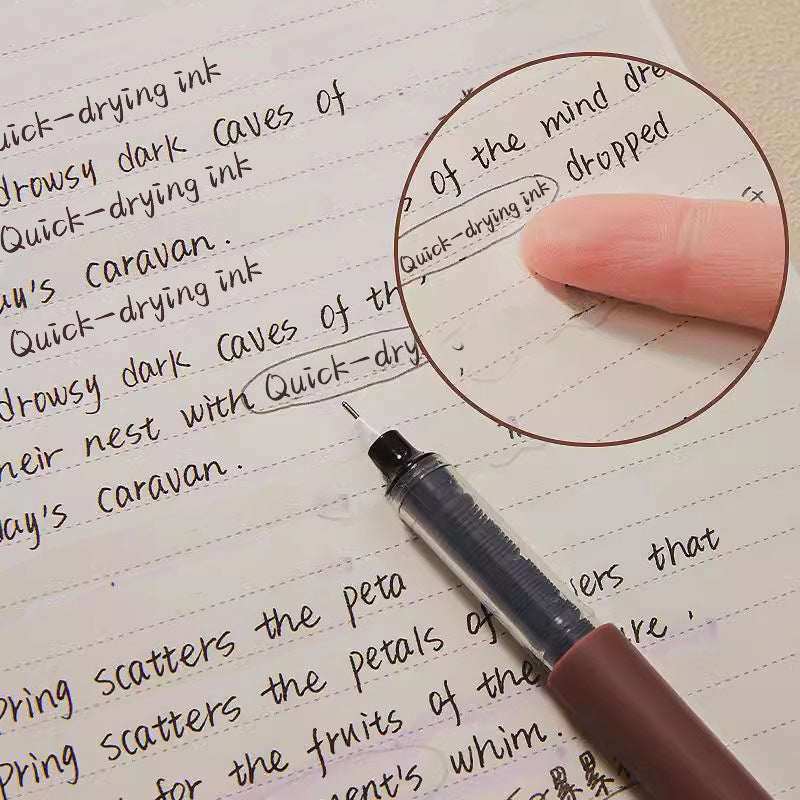 uick-drying ink
drowsy dark caves of
Quick-drying ink
ay's caravan.
Quick-drying ink
drowsy dark caves of th
heir nest with Quick-dry
day's caravan.
of the mind dre
dropped
Quick-drying ink
pring scatters the peta ers that
pring scatters the petals of re,
for the fruits of the
ent's whim.
累累